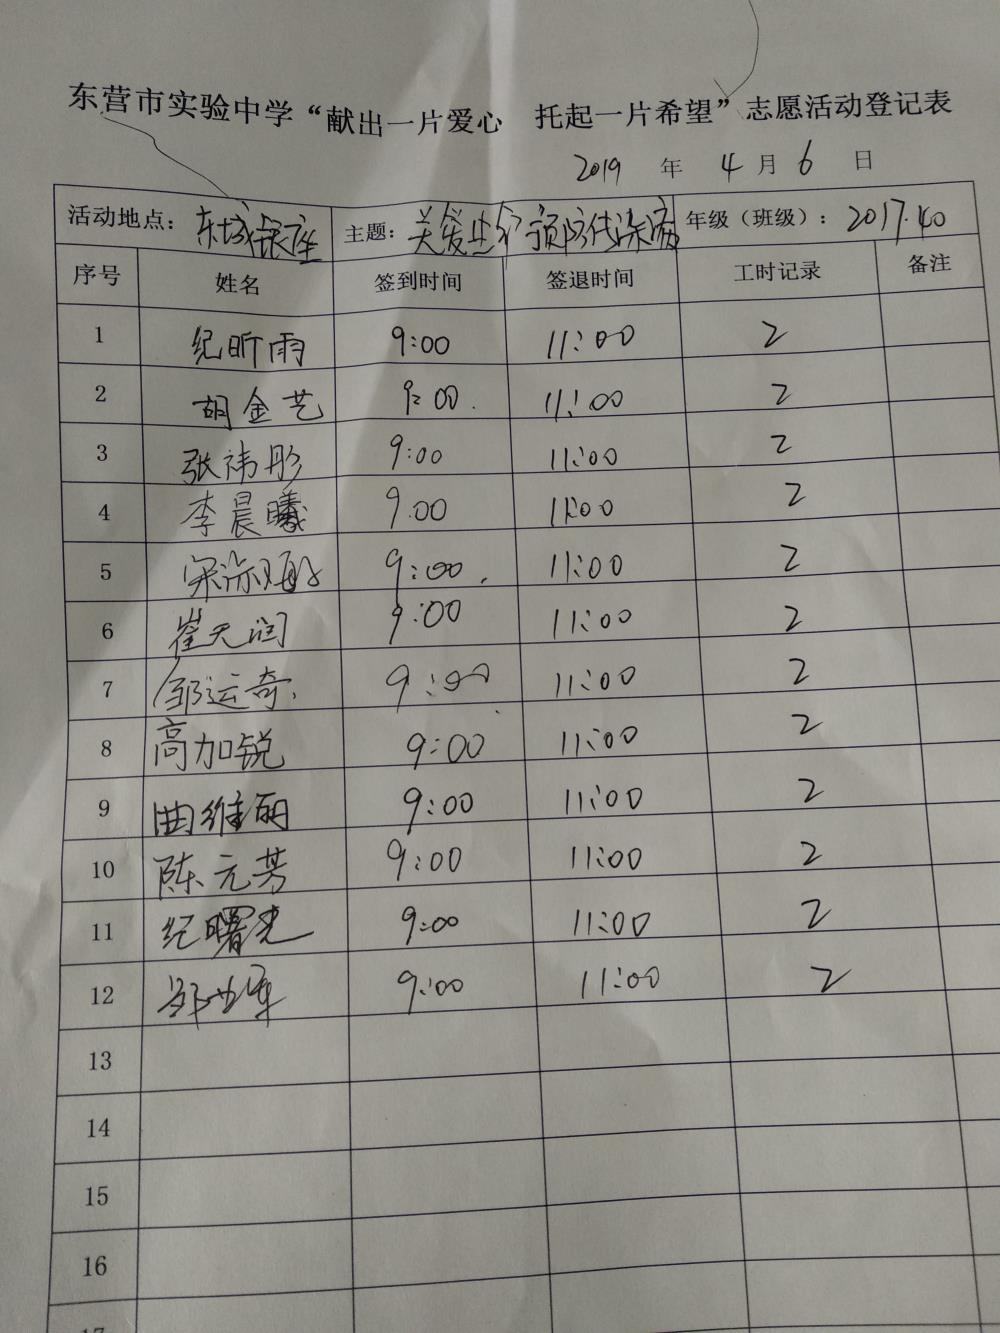 东营市实验中学“献出一片爱心 托起一片希望”志愿活动登记表
2019 年 4 月 6 日
活动地点：东城银座 主题：关爱生命预防传染病 年级（班级）：2017.40
序号 姓名 签到时间 签退时间 工时记录 备注
1 纪昕雨 9:00 11:00 2
2 胡金艺 9:00 11:00 2
3 张祎彤 9:00 11:00 2
4 李晨曦 9:00 11:00 2
5 宋淑敏 9:00 11:00 2
6 崔天润 9:00 11:00 2
7 邹运奇 9:00 11:00 2
8 高加锐 9:00 11:00 2
9 曲维丽 9:00 11:00 2
10 陈元芳 9:00 11:00 2
11 纪曙光 9:00 11:00 2
12 9:00 11:00 2
13
14
15
16
17